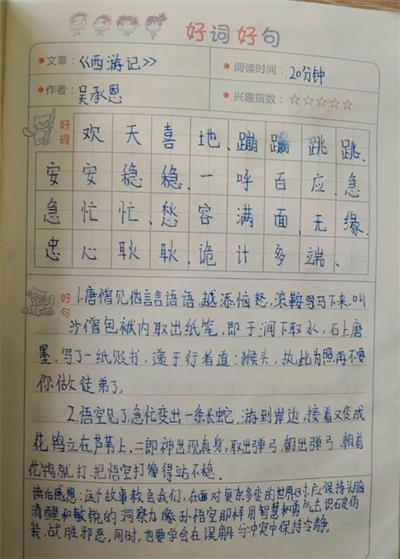 好词好句
文章：《西游记》 阅读时间：20分钟
作者：吴承恩 兴趣指数：☆☆☆☆☆
好词
欢天喜地、蹦蹦跳跳、
安安稳稳、一呼百应、急
急忙忙、愁容满面、无缘、
忠心耿耿、诡计多端、
好句
1.唐僧见他言言语语，越添恼怒，滚鞍下马来，叫
沙僧包袱内取出纸笔，即于涧下取水，石上磨
墨，写了一纸贬书，递于行者道：猴头，执此为照，再不要
你做徒弟了。
2.悟空见了急忙变出一条长蛇，游到岸边，接着又变成
花鸨立在芦苇上。二郎神出现真身，取出弹弓，朝出弹弓，朝着
花鸨就打，把悟空打得站不稳。
读后感想：这个故事教会我们，在面对复杂多变的世界时，应保持头脑
清醒和敏锐的洞察力像孙悟空那样用智慧和勇气去识破伪
装，战胜邪恶，同时，也要学会在误解与冲突中保持冷静。